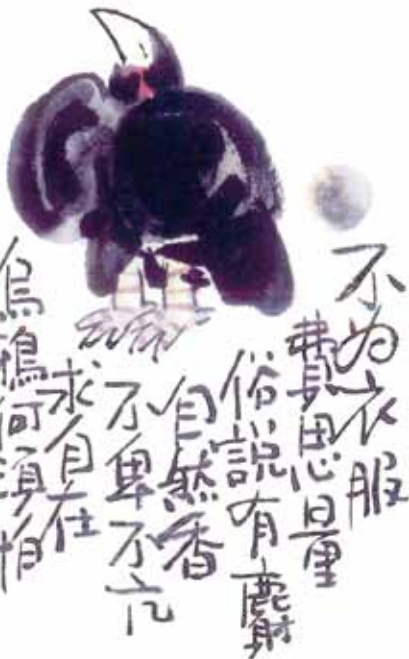 不为衣服
費思量
俗説有麝
自然香
不卑不亢
求自在
烏鴉何須怕